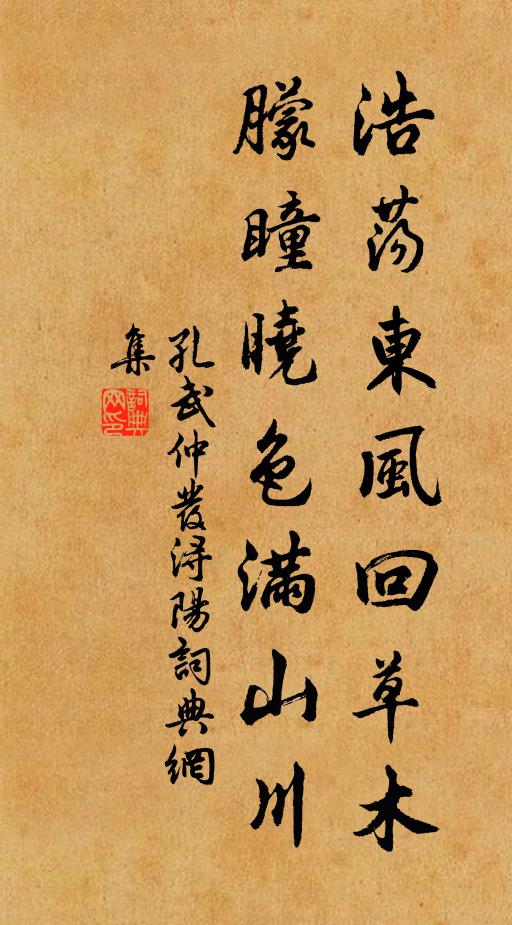 浩荡東風回草木
朦瞳曉色滿山川
孔武仲發潯陽詞典網
集
詞典
网印